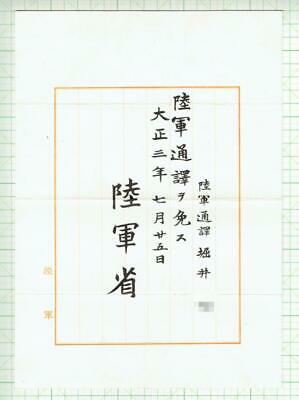 陸軍通譯 堀井
陸軍通譯ヲ免ス
大正三年七月廿五日
陸軍省
陸軍